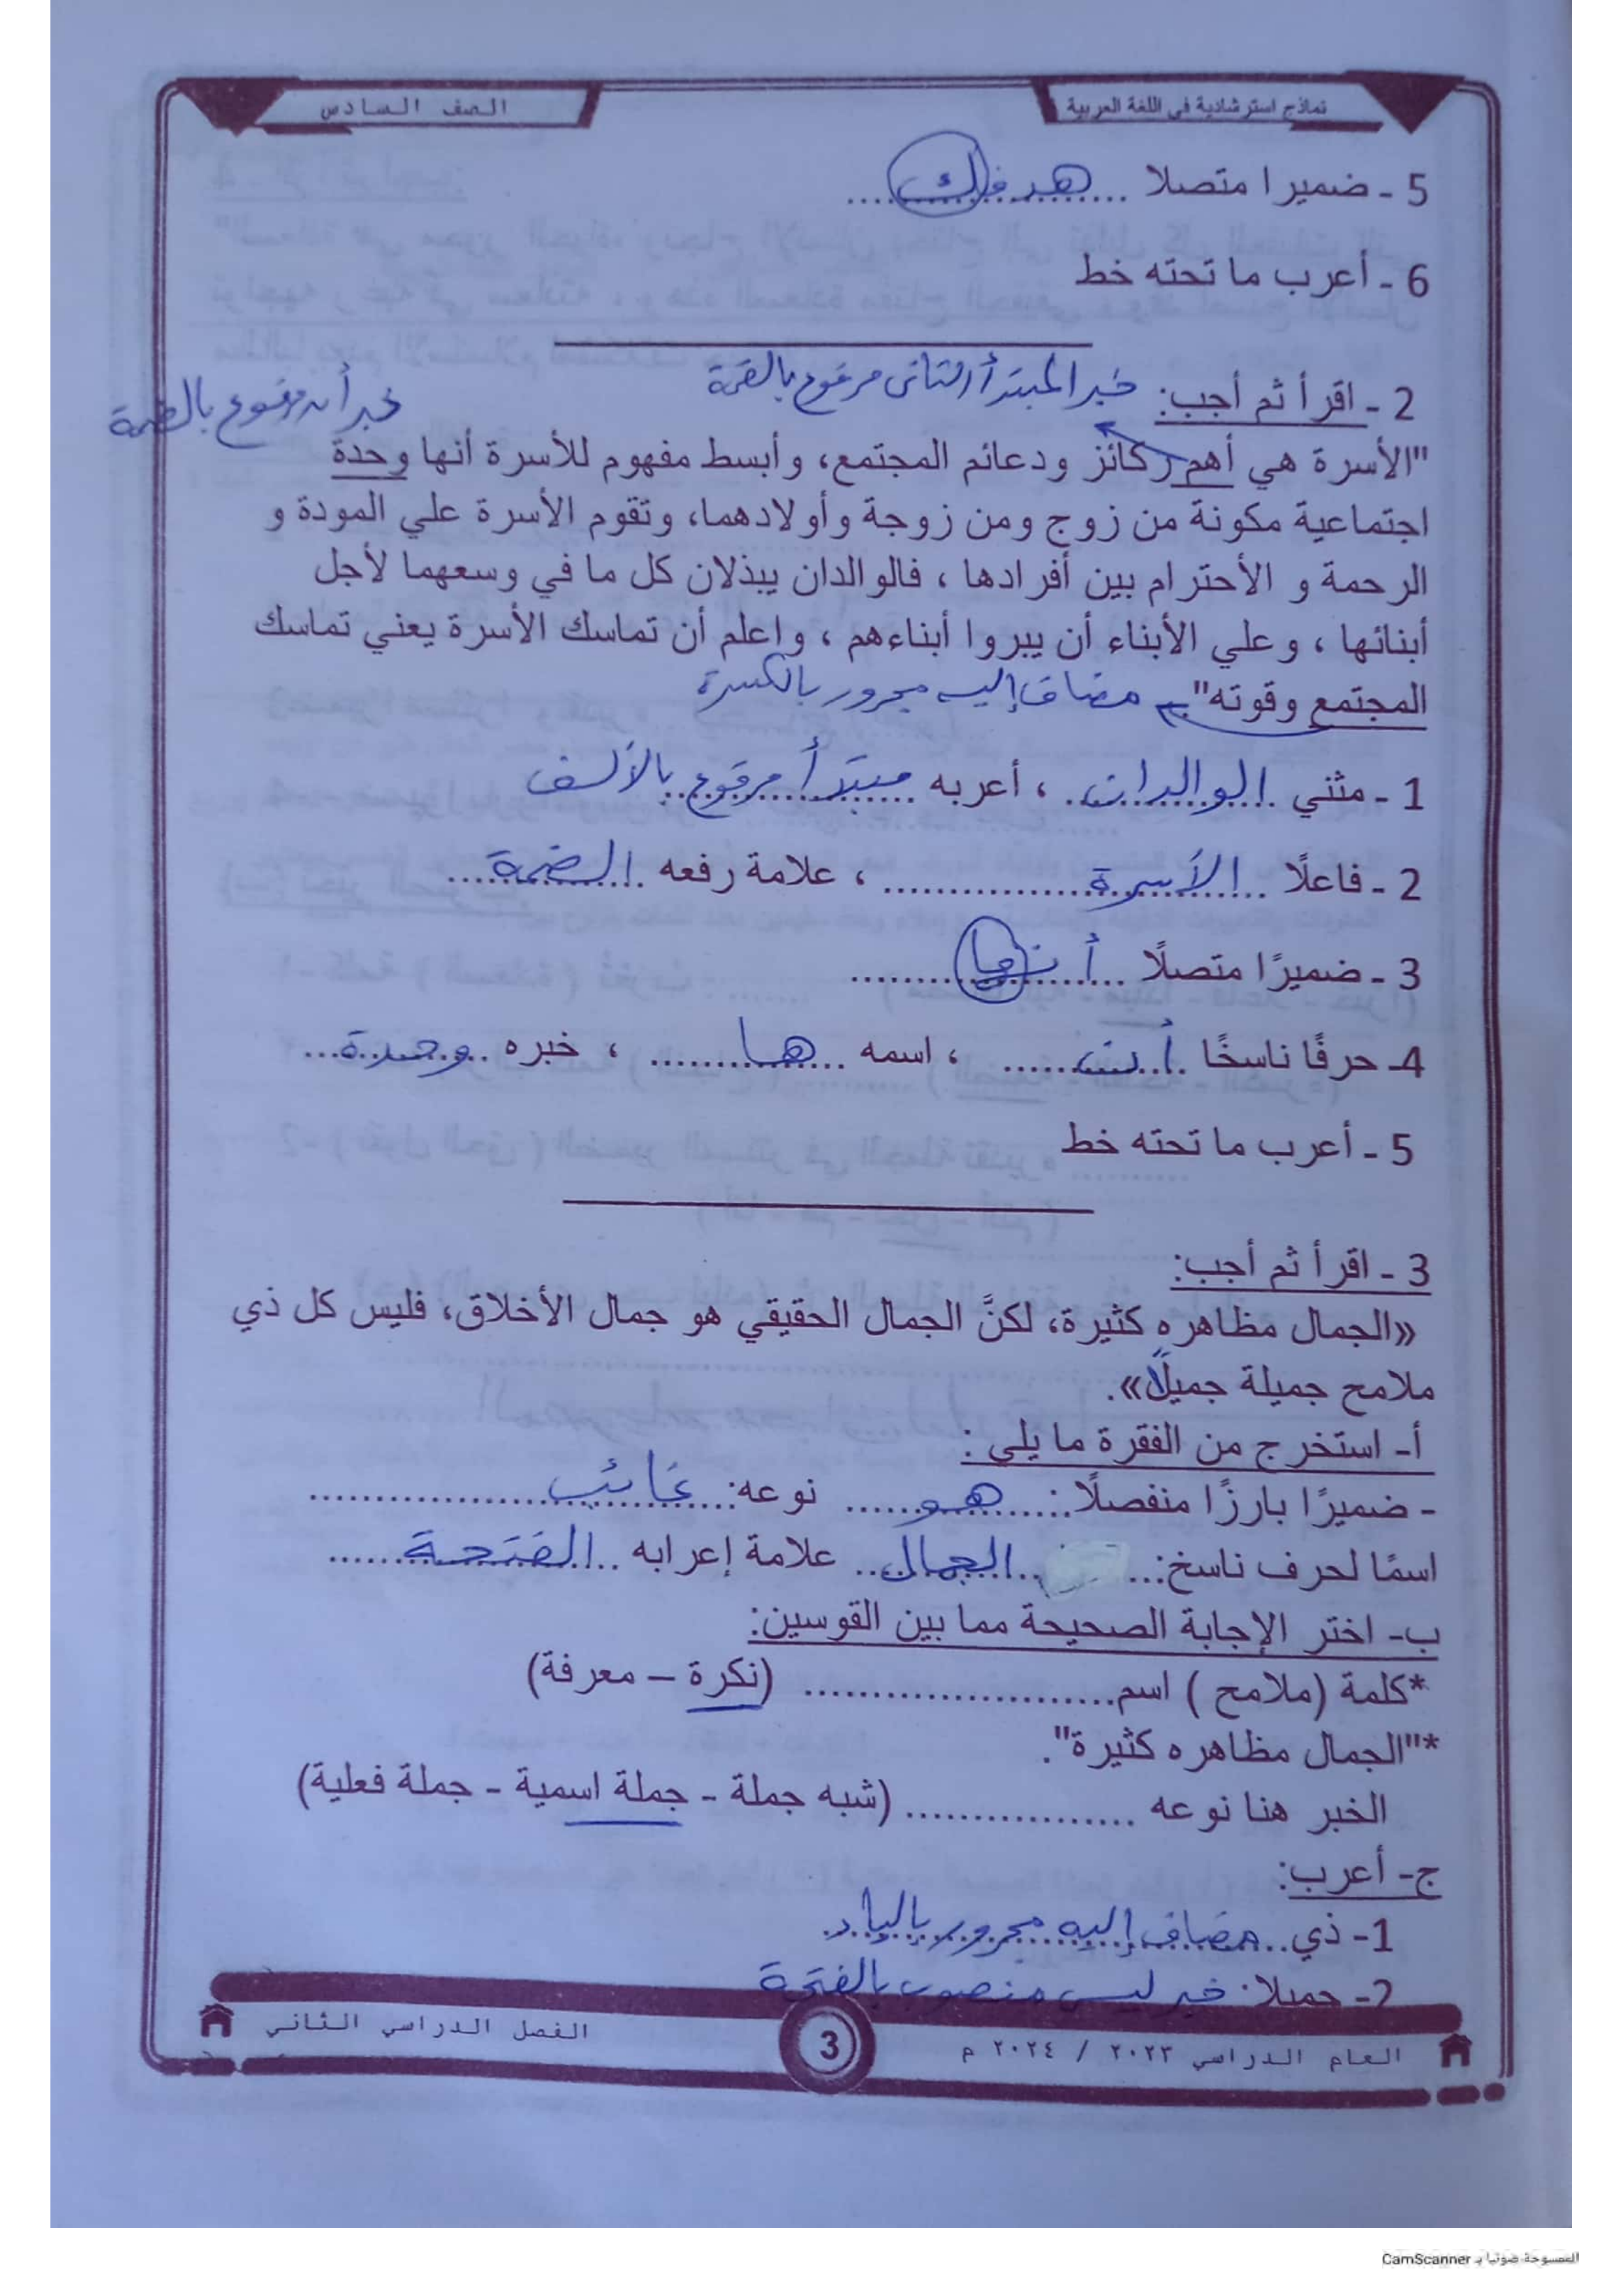 نماذج استرشادية في اللغة العربية
الصف السادس
5 - ضميرا متصلا ...هدفك...
6 - أعرب ما تحته خط
2 - اقرأ ثم أجب: خبر المبتدأ الثاني مرفوع بالضمة
خبر أن مرفوع بالضمة
"الأسرة هي أهم ركائز ودعائم المجتمع، وأبسط مفهوم للأسرة أنها وحدة
اجتماعية مكونة من زوج ومن زوجة وأولادهما، وتقوم الأسرة علي المودة و
الرحمة و الأحترام بين أفرادها ، فالوالدان يبذلان كل ما في وسعهما لأجل
أبنائها ، وعلي الأبناء أن يبروا أبناءهم ، واعلم أن تماسك الأسرة يعني تماسك
المجتمع وقوته" مضاف إليه مجرور بالكسرة
1 - مثني ..الوالدان.. ، أعربه مبتدأ مرفوع بالألف
2 - فاعلًا ..الأسرة.............. ، علامة رفعه الضمة......
3 - ضميرًا متصلًا ...أنها.........
4- حرفًا ناسخًا ..أن....... ، اسمه ...ها......... ، خبره ..وحدة...
5 - أعرب ما تحته خط
3 - اقرأ ثم أجب:
«الجمال مظاهره كثيرة، لكنَّ الجمال الحقيقي هو جمال الأخلاق، فليس كل ذي
ملامح جميلة جميلًا».
أ- استخرج من الفقرة ما يلي :
- ضميرًا بارزًا منفصلًا:...هو..... نوعه:..غائب..................
اسمًا لحرف ناسخ:.....الجمال.. علامة إعرابه ..الفتحة......
ب- اختر الإجابة الصحيحة مما بين القوسين:
*كلمة (ملامح ) اسم....................... (نكرة – معرفة)
*"الجمال مظاهره كثيرة".
الخبر هنا نوعه ................. (شبه جملة - جملة اسمية - جملة فعلية)
ج- أعرب:
1- ذي..مضاف إليه مجرور بالياء.
2- جميلا: خبر ليس منصوب بالفتحة
العام الدراسي ٢٠٢٣ / ٢٠٢٤ م
3
الفصل الدراسي الثاني
الممسوحة ضوئيا بـ CamScanner